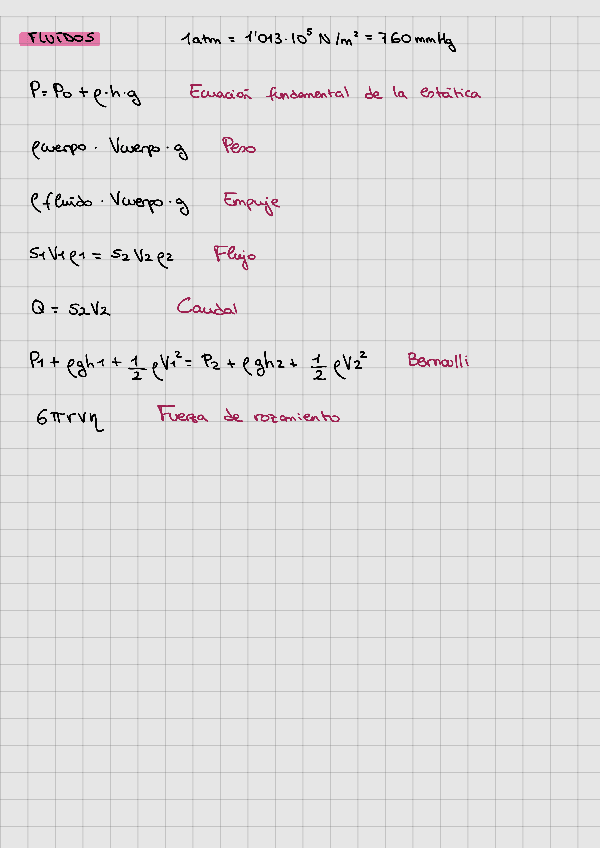 FLUÍDOS 1atm = 1'013·10⁵ N/m² = 760 mmHg
P = P₀ + ρ·h·g Ecuación fundamental de la estática
ρcuerpo · Vcuerpo · g Peso
ρfluido · Vcuerpo · g Empuje
S₁V₁ρ₁ = S₂V₂ρ₂ Flujo
Q = S₂V₂ Caudal
P₁ + ρgh₁ + 1/2 ρV₁² = P₂ + ρgh₂ + 1/2 ρV₂² Bernoulli
6πrvη Fuerza de rozamiento